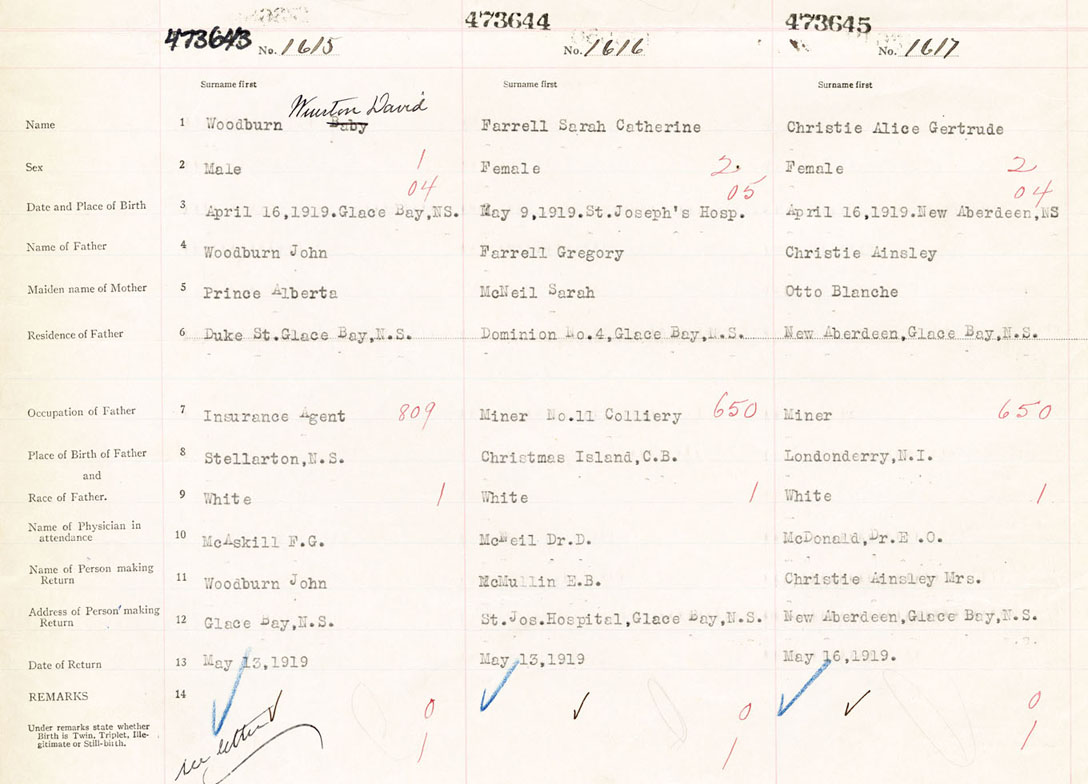 473643 No. 1615 473644 No. 1616 473645 No. 1617
Surname first Surname first Surname first
Winston David
Name 1 Woodburn Baby Farrell Sarah Catherine Christie Alice Gertrude
Sex 2 Male 1 Female 2 Female 2
04 05 04
Date and Place of Birth 3 April 16,1919.Glace Bay,NS. May 9,1919.St.Joseph's Hosp. April 16,1919.New Aberdeen,NS
Name of Father 4 Woodburn John Farrell Gregory Christie Ainsley
Maiden name of Mother 5 Prince Alberta McNeil Sarah Otto Blanche
Residence of Father 6 Duke St.Glace Bay,N.S. Dominion No.4,Glace Bay,N.S. New Aberdeen,Glace Bay,N.S.
Occupation of Father 7 Insurance Agent 809 Miner No.11 Colliery 650 Miner 650
Place of Birth of Father 8 Stellarton,N.S. Christmas Island,C.B. Londonderry,N.I.
and
Race of Father. 9 White 1 White 1 White 1
Name of Physician in
attendance 10 McAskill F.G. McNeil Dr.D. McDonald,Dr.E .O.
Name of Person making
Return 11 Woodburn John McMullin E.B. Christie Ainsley Mrs.
Address of Person making
Return 12 Glace Bay,N.S. St.Jos.Hospital,Glace Bay,N.S. New Aberdeen,Glace Bay,N.S.
Date of Return 13 May 13,1919 May 13,1919 May 16,1919.
REMARKS 14
0 0 0
Under remarks state whether
Birth is Twin, Triplet, Ille-
gitimate or Still-birth.
1 1 1
see letter